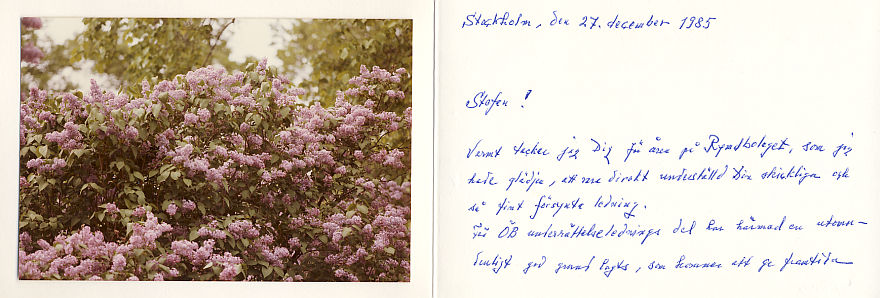 Stockholm, den 27. december 1985
Stefen !
Varmt tackar jag Dig för åren på Rymdbolaget, som jag
hade glädjen, att vara direkt underställd Din skickliga och
så fint försynta ledning.
För ÖB underrättelselednings del har härmed en utomor-
dentligt god grund lagts, som kommer att ge framtida